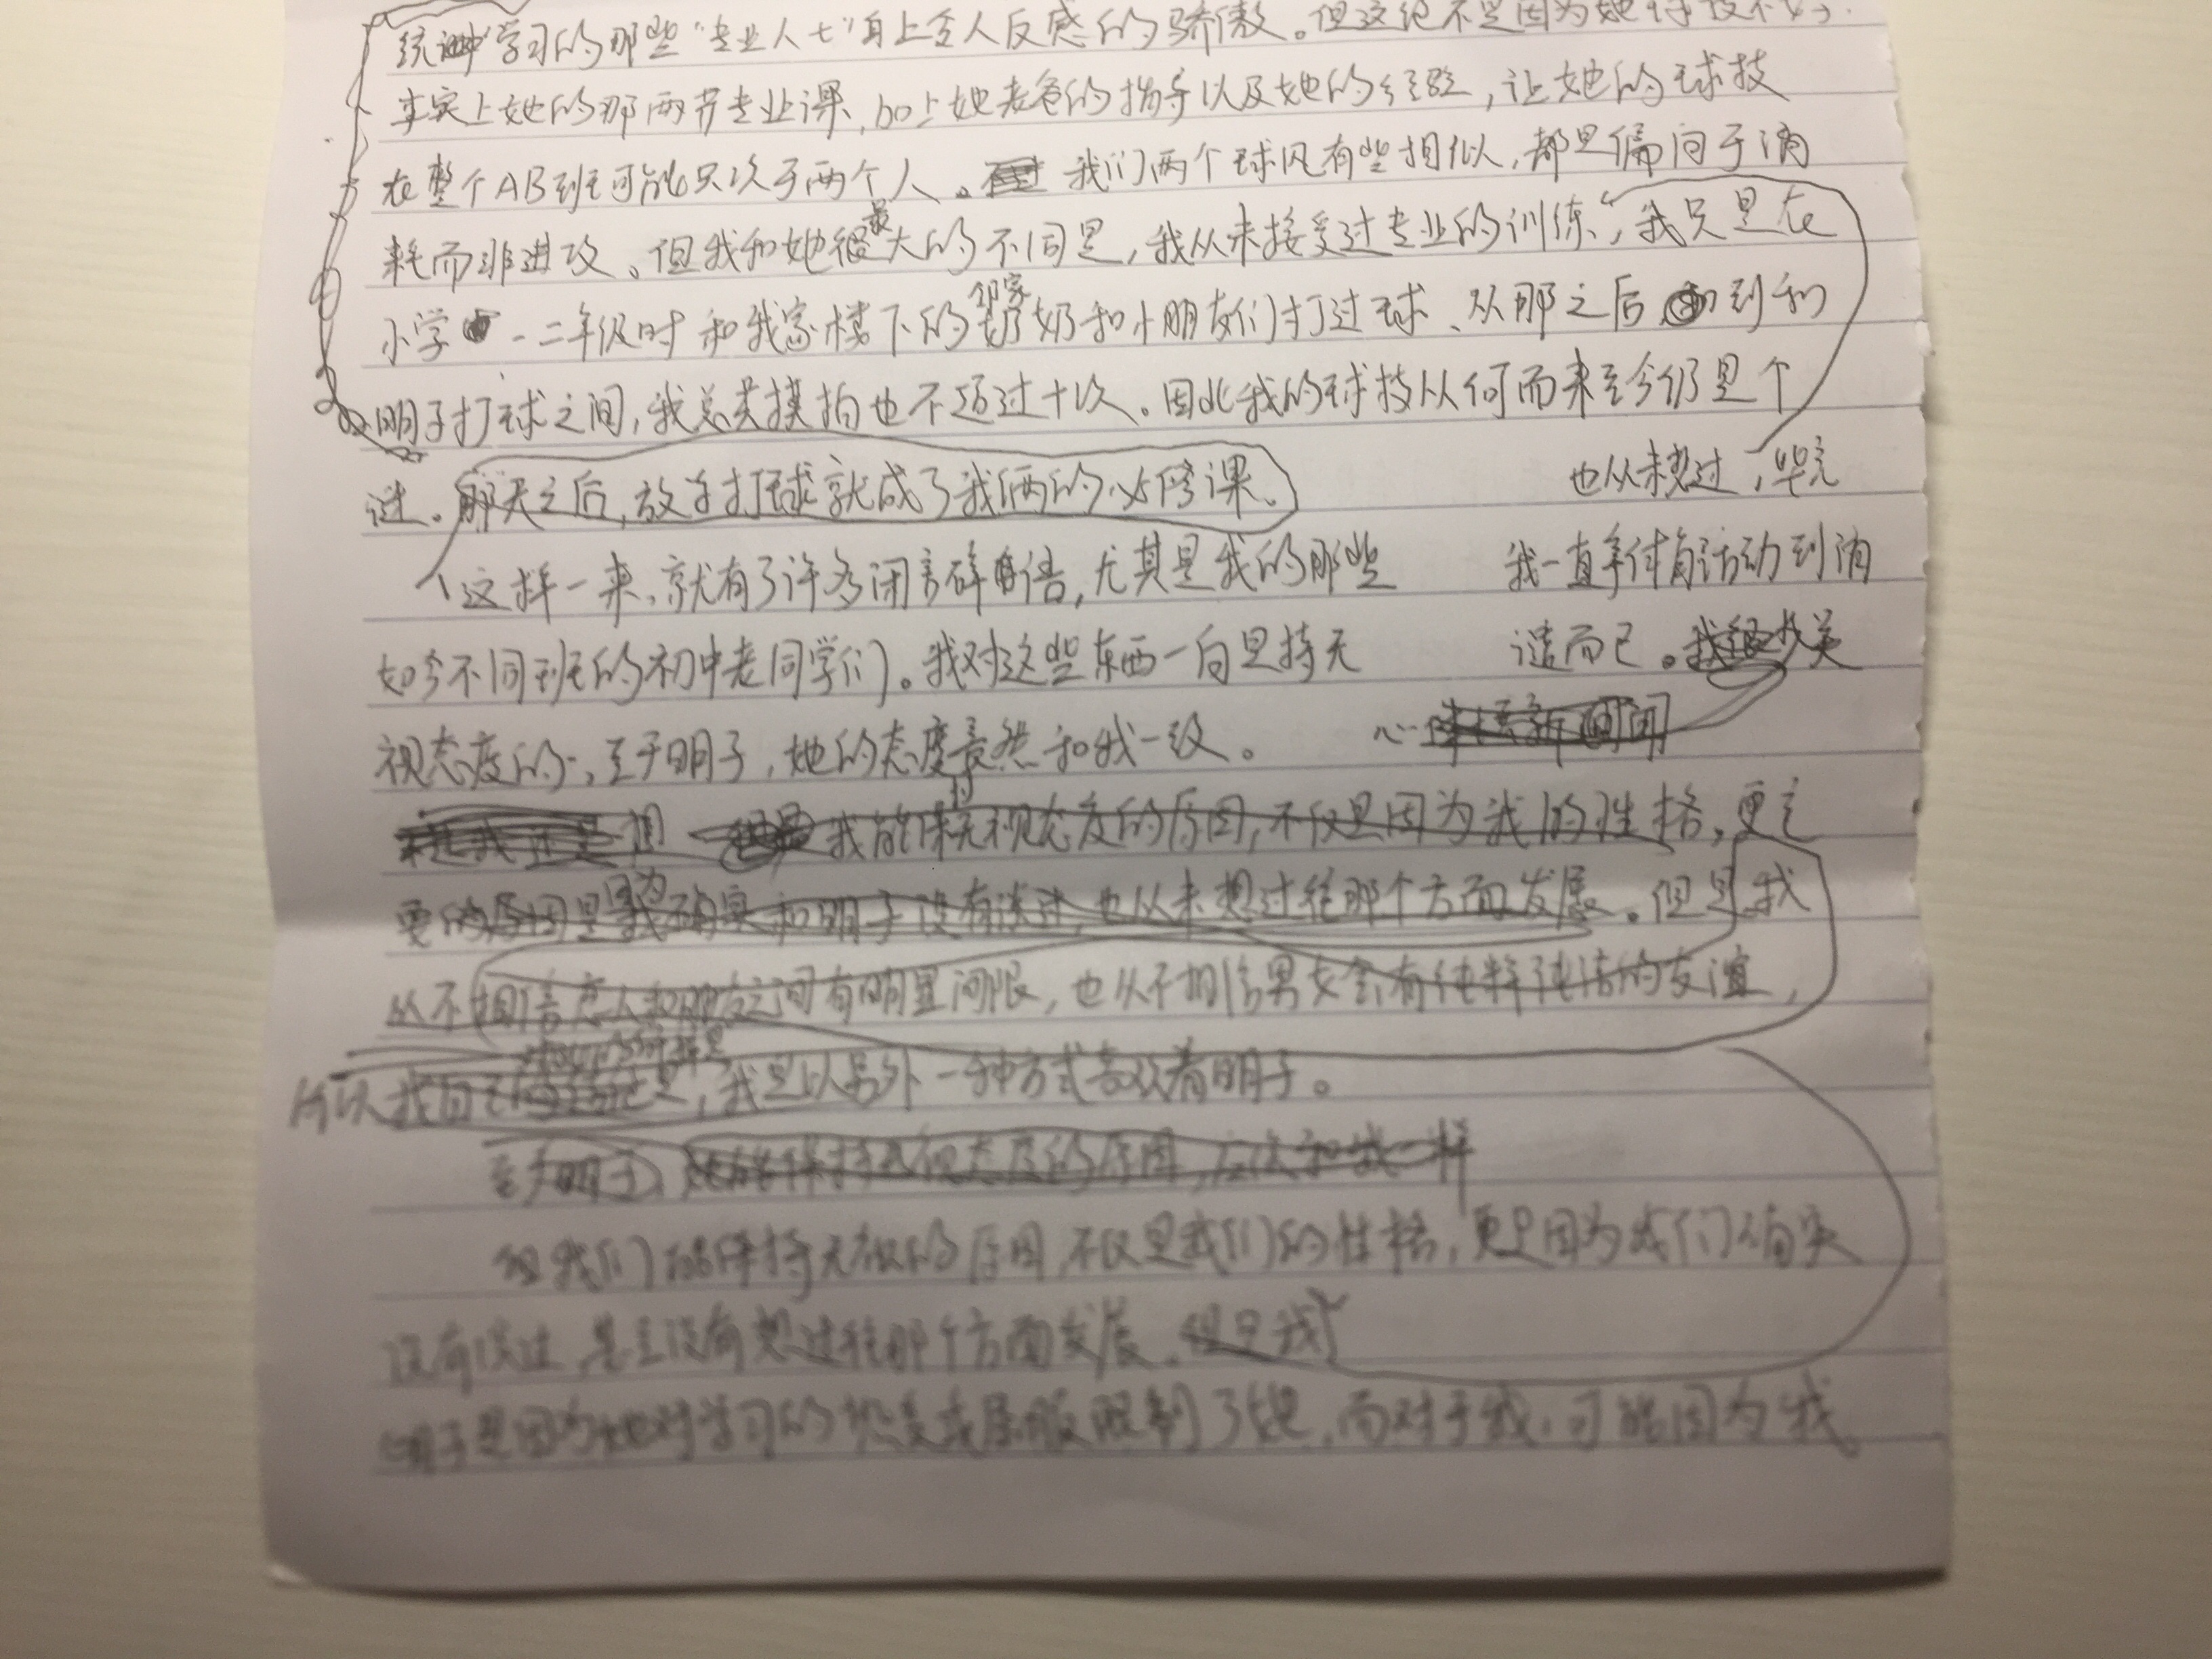 学习的那些“专业人士”身上令人反感的骄傲。但这绝不是因为她
事实上她的那两节专业课,加上她老爸的指导以及她的经验,让她的球技
在整个AB班可能只次于两个人。我们两个球风有些相似,都是偏向于消
耗而非进攻。但我和她最大的不同是,我从未接受过专业的训练,我只是在
小学一二年级时和我家楼下的邻家奶奶和小朋友们打过球、从那之后到和
明子打球之间,我总共摸拍也不超过十次。因此我的球技从何而来至今仍是个
谜。那天之后,放学打球就成了我俩的必修课。
也从未想过,毕竟
这样一来、就有了许多闲言碎语,尤其是我的那些
我一直
活动到消
如今不同班的初中老同学们。我对这些东西一向是持无
遣而已。
视态度的、至于明子,她的态度竟然和我一致。
我能保持无视态度的原因,不仅是因为我的性格,更主
要的原因是因为我确实和明子没有谈过,也从未想过往那个方面发展。但是我
从不相信恋人和朋友之间有明显间限,也从不相信男女会有纯粹纯洁的友谊,
所以我自己
,我是以另外一种方式喜欢着明子。
至于明子,她能保持无视态度的原因,应该和我一样
但我们能保持无视的原因,不仅是我们的性格,更是因为我们确实
没有谈过,甚至没有想过往那个方面发展。但是我
明子是因为她对学习的热爱或屈服限制了她,而对于我,可能因为我。